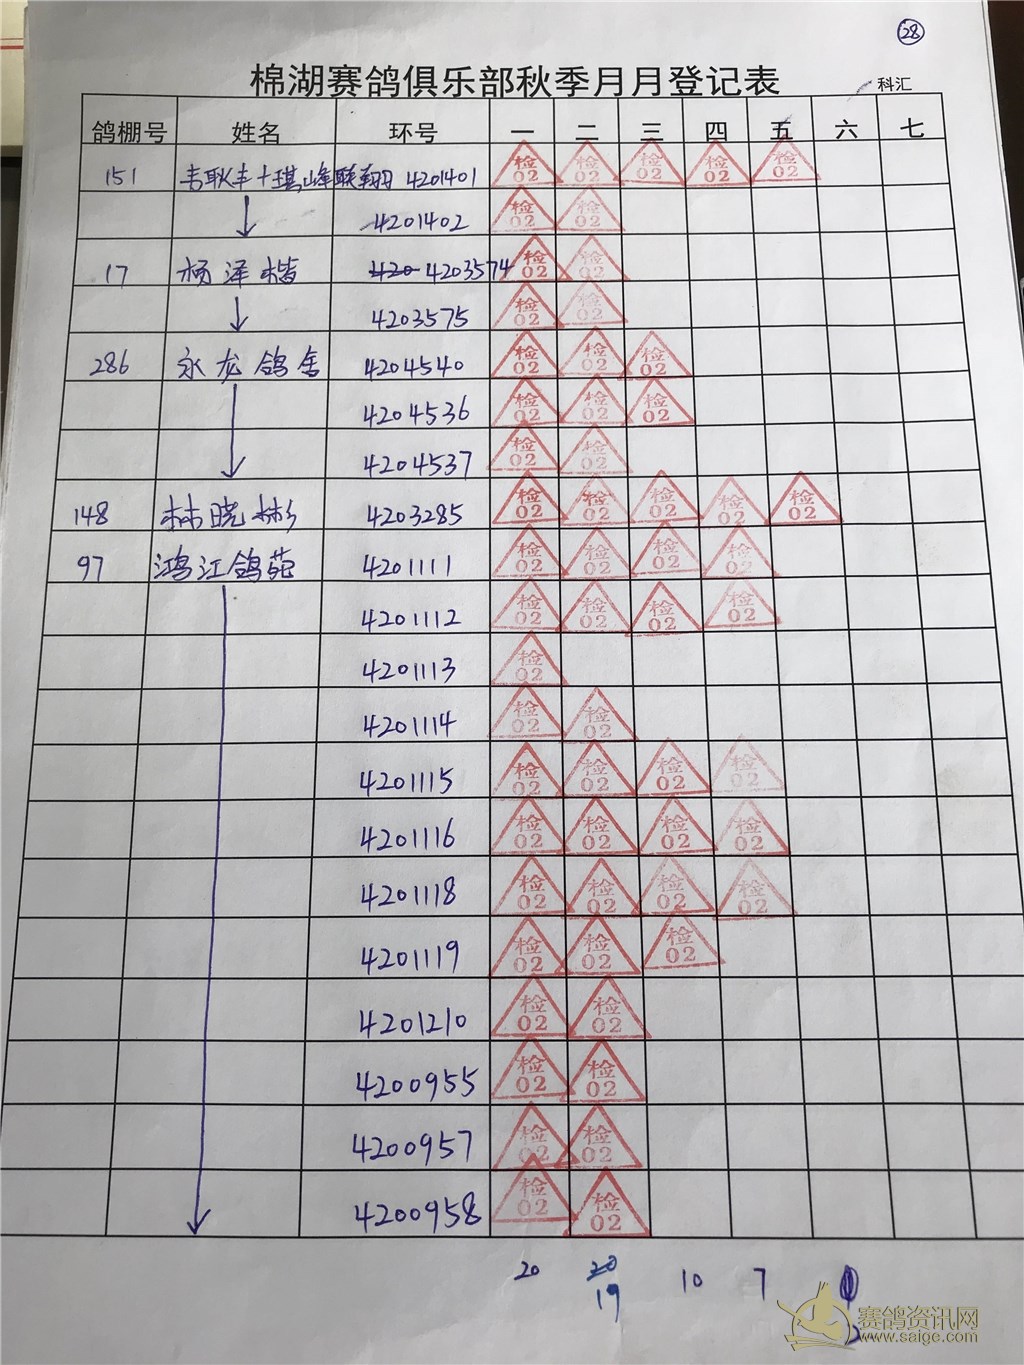 28
棉湖赛鸽俱乐部秋季月月登记表
科汇
鸽棚号 姓名 环号 一 二 三 四 五 六 七
151 韦耿丰十琪峰联翔 4201401 检02 检02 检02 检02 检02
4201402 检02 检02
17 杨泽楷 420 4203574 检02 检02
4203575 检02 检02
286 永龙鸽舍 4204540 检02 检02 检02
4204536 检02 检02 检02
4204537 检02 检02
148 林晓彬 4203285 检02 检02 检02 检02 检02
97 鸿江鸽苑 4201111 检02 检02 检02 检02
4201112 检02 检02 检02 检02
4201113 检02
4201114 检02 检02
4201115 检02 检02 检02 检02
4201116 检02 检02 检02 检02
4201118 检02 检02 检02 检02
4201119 检02 检02 检02
4201210 检02 检02
4200955 检02 检02
4200957 检02 检02
4200958 检02 检02
20 20 10 7
19 2
赛鸽资讯网
www.saige.com